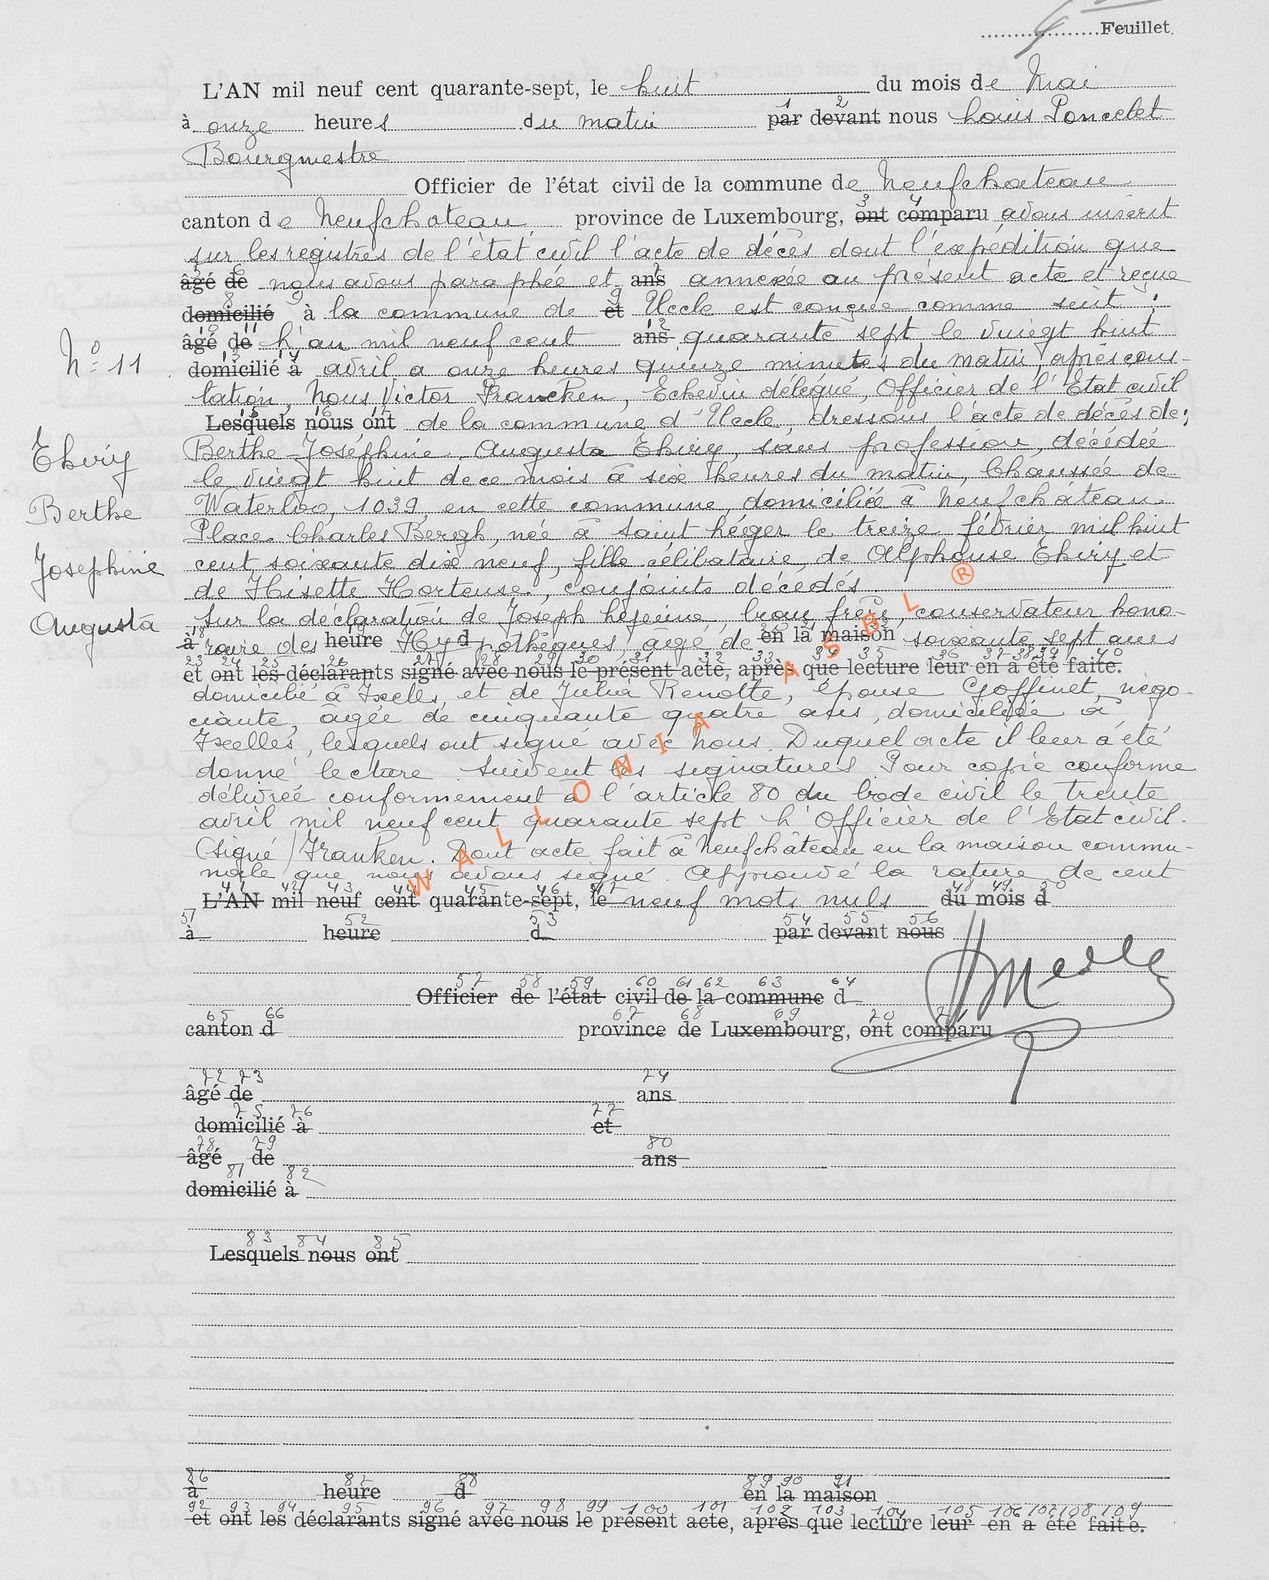 4 Feuillet.
L'AN mil neuf cent quarante-sept, le huit du mois de Mai
à onze heures du matin par devant nous Louis Poncelet
1 2
Bourgmestre
Officier de l'état civil de la commune de Neufchateau
canton de Neufchateau province de Luxembourg, ont comparu avons inscrit
3 4
sur les registres de l'état civil l'acte de décès dont l'expédition que
âgé de nous avons paraphée et ans annexée au présent acte et reçue
domicilié à la commune de et Uccle est conçue comme suit :
âgé de L'an mil neuf cent ans quarante sept, le vingt huit
N° 11
domicilié à avril a onze heures quinze minutes du matin, après cons-
tation, Nous Victor Francken, Echevin délégué, Officier de l'Etat civil
Lesquels nous ont de la commune d'Uccle, dressons l'acte de décès de :
Thiry
Berthe
Josephine
Augusta
Berthe Joséphine, Augusta Thiry, sans profession, décédée
le vingt huit de ce mois à six heures du matin, Chaussée de
Waterloo, 1039, en cette commune, domiciliée à Neufchâteau
Place Charles Bergh, née à Saint Léger le treize février mil huit
cent, soixante dix neuf, fille célibataire, de Alphonse Thiry et
de Hisette Hortense, conjoints décédés
Sur la déclaration de Joseph Lejeune, beau frère, conservateur hono-
à raire des heure Hyd pothèques, age de en la maison soixante sept ans
23 24 25 26 27 28 29 30 31 32 33 34 35 36 37 38 39 40
et ont les déclarants signé avec nous le présent acte, après que lecture leur en a été faite.
domicilié à Ixelles, et de Julia Renotte, épouse Goffinet, négo-
ciante, âgée de cinquante quatre ans, domiciliée à
Ixelles, lesquels ont signé avec nous. Duquel acte il leur a été
donné lecture. Suivent les signatures. Pour copie conforme
délivrée conformement à l'article 80 du Code civil le trente
avril mil neuf cent quarante sept L'Officier de l'Etat civil.
(signé) Franken. Dont acte fait à Neufchâteau en la maison commu-
nale que nous avons signé. Approuvé la rature de cent
41 42 43 44 45 46 47 48 49 50
L'AN mil neuf cent quarante-sept, le neuf mots nuls du mois d
51 52 53 54 55 56
à heure d par devant nous
57 58 59 60 61 62 63 64
Officier de l'état civil de la commune d
65 66 67 68 69 70 71
canton d province de Luxembourg, ont comparu
72 73 74
âgé de ans
75 76 77
domicilié à et
78 79 80
âgé de ans
81 82
domicilié à
83 84 85
Lesquels nous ont
86 87 88 89 90 91
à heure d en la maison
92 93 94 95 96 97 98 99 100 101 102 103 104 105 106 107 108 109
et ont les déclarants signé avec nous le présent acte, après que lecture leur en a été faite.
WALLONIA ASBL ®